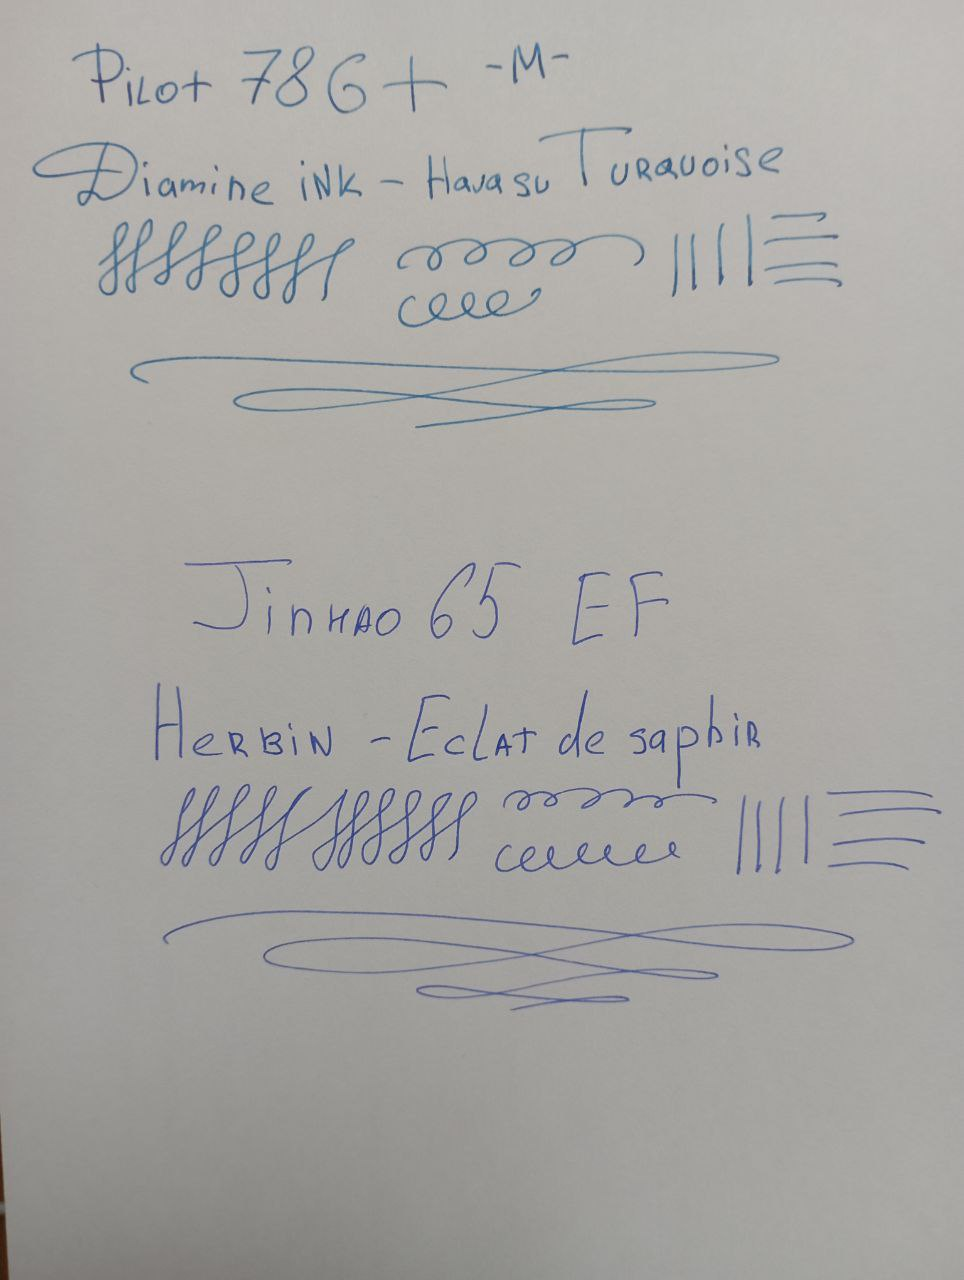 Pilot 78G+ -M-
Diamine ink - Havasu Turquoise
Jinhao 65 EF
Herbin - Eclat de saphir